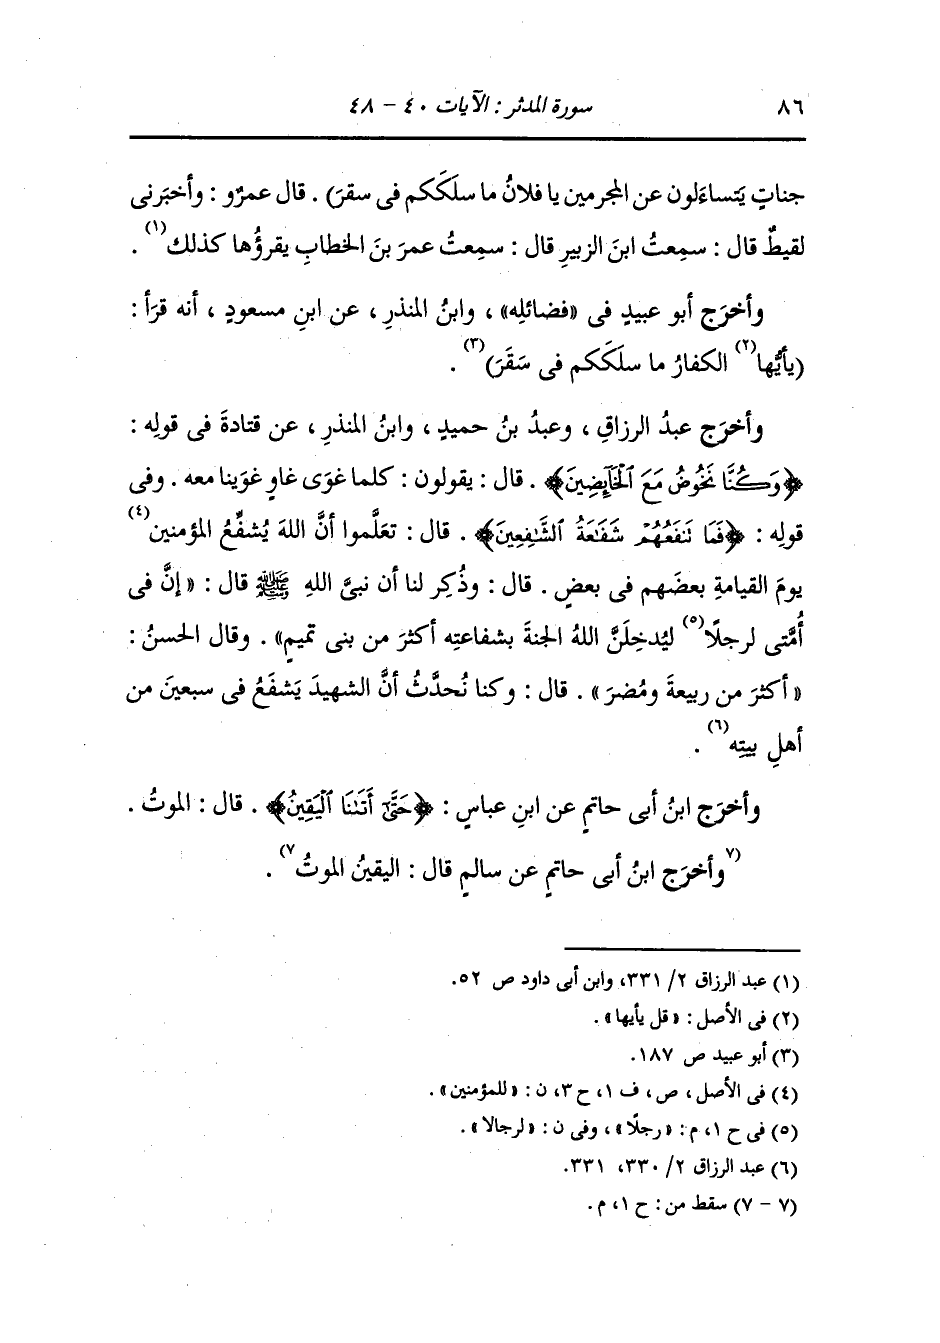 ٨٦ سورة المدثر : الآيات ٤٠ – ٤٨
جناتٍ يَتساءَلون عن المجرمين يا فلانُ ما سلَكَكم فى سقرَ) . قال عمرٌو : وأخبَرنى
لقيطٌ قال : سمِعتُ ابنَ الزبيرِ قال : سمِعتُ عمرَ بنَ الخطابِ يقرؤُها كذلك(١) .
وأخرَج أبو عبيدٍ فى «فضائلِه» ، وابنُ المنذرِ ، عن ابنِ مسعودٍ ، أنه قرَأ :
(يأيُّها(٢) الكفارُ ما سلَكَكم فى سَقَرَ)(٣) .
وأخرَج عبدُ الرزاقِ ، وعبدُ بنُ حميدٍ ، وابنُ المنذرِ ، عن قتادةَ فى قولِه :
﴿وَكُنَّا نَخُوضُ مَعَ ٱلْخَآئِضِينَ﴾ . قال : يقولون : كلما غوَى غاوٍ غوَينا معه . وفى
قولِه : ﴿فَمَا نَنفَعُهُمْ شَفَٰعَةُ ٱلشَّٰفِعِينَ﴾ . قال : تعَلَّموا أنَّ اللهَ يُشفِّعُ المؤمنين(٤)
يومَ القيامةِ بعضَهم فى بعضٍ . قال : وذُكِر لنا أن نبىَّ اللهِ ﷺ قال : « إنَّ فى
أُمَّتى لرجلًا(٥) ليُدخِلَنَّ اللهُ الجنةَ بشفاعتِه أكثرَ من بنى تميمٍ» . وقال الحسنُ :
« أكثرَ من ربيعةَ ومُضرَ » . قال : وكنا نُحدَّثُ أنَّ الشهيدَ يَشفَعُ فى سبعينَ من
أهلِ بيتِه(٦) .
وأخرَج ابنُ أبى حاتمٍ عن ابنِ عباسٍ : ﴿حَتَّىٰٓ أَتَىٰنَا ٱلْيَقِينُ﴾ . قال : الموتُ .
(٧وأخرَج ابنُ أبى حاتمٍ عن سالمٍ قال : اليقينُ الموتُ٧) .
(١) عبد الرزاق ٢/ ٣٣١، وابن أبى داود ص ٥٢.
(٢) فى الأصل : « قل يأيها» .
(٣) أبو عبيد ص ١٨٧.
(٤) فى الأصل ، ص ، ف ١، ح ٣، ن : « للمؤمنين» .
(٥) فى ح ١، م : « رجلًا» ، وفى ن : « لرجالا» .
(٦) عبد الرزاق ٢/ ٣٣٠، ٣٣١.
(٧ – ٧) سقط من : ح ١، م .